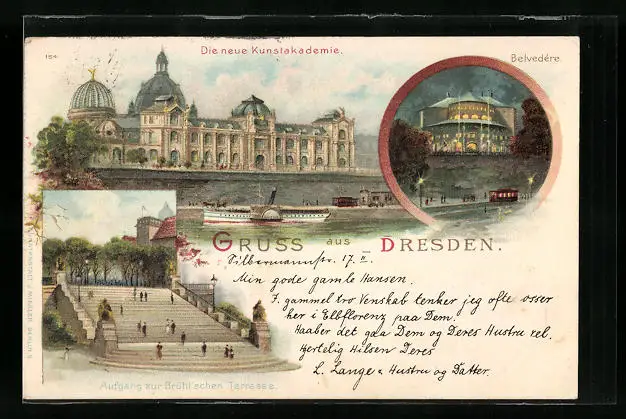 154
Die neue Kunstakademie.
Belvedére.
GRUSS aus DRESDEN.
Silbermannstr. 17. II.
Min gode gamle Hansen.
I gammel tro Venskab tenker jeg ofte osser
her i Elbflorenz paa Dem.
Haaber det gaa Dem og Deres Hustru vel.
Hertelig Hilsen Deres
L. Lange & Hustru og Datter.
Aufgang zur Brühl'schen Terrasse.